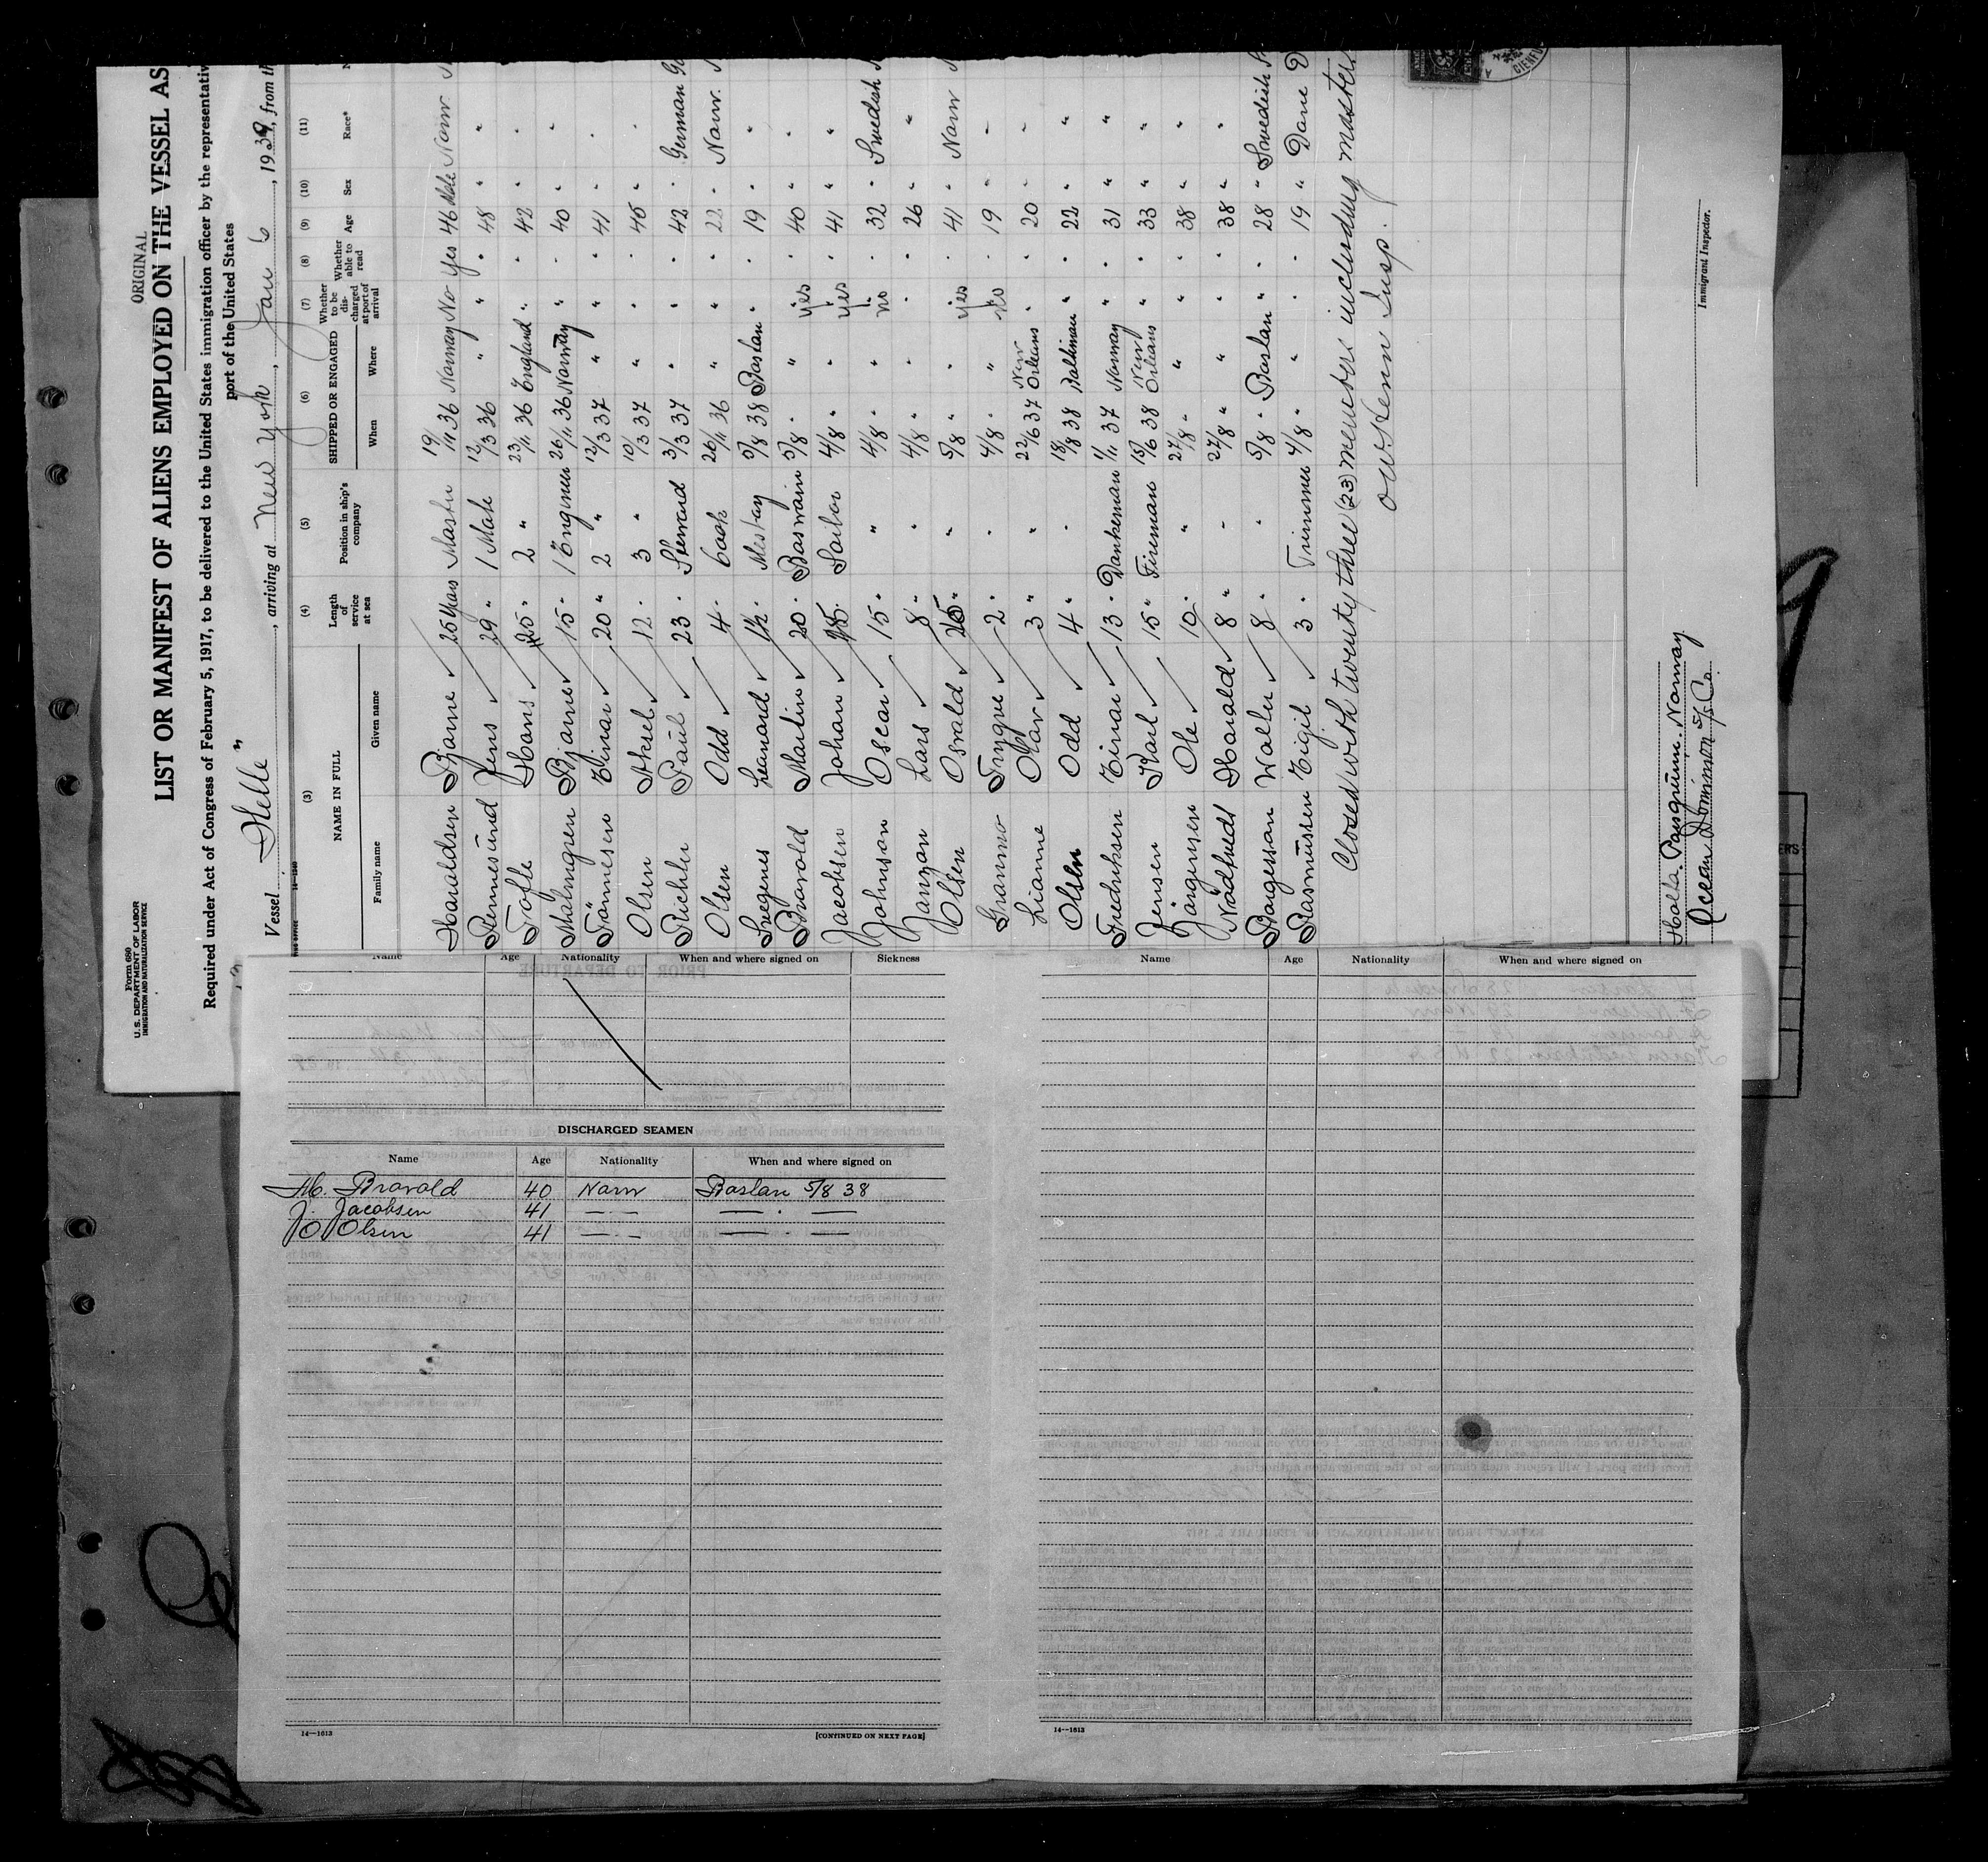 Form 680
U. S. DEPARTMENT OF LABOR
IMMIGRATION AND NATURALIZATION SERVICE
ORIGINAL
LIST OR MANIFEST OF ALIENS EMPLOYED ON THE VESSEL AS
Required under Act of Congress of February 5, 1917, to be delivered to the United States immigration officer by the representativ
port of the United States
Vessel "Helle", arriving at New York, Jan 6, 1939, from th
(3) (4) (5) (6) (7) (8) (9) (10) (11)
NAME IN FULL Length of service at sea Position in ship's company SHIPPED OR ENGAGED Whether to be discharged at port of arrival Whether able to read Age Sex Race*
Family name Given name When Where
Haraldsen Bjarne 25 years Master 19/11 36 Norway No Yes 46 Male Norw.
Jens 29 " 1 Mate 12/3 36 " " " 48 " "
Hans 25 " 2 " 23/11 36 England " " 42 " "
Malmgren Bjarne 15 " 1 Engineer 26/11 36 Norway " " 40 " "
Tönnesen Einar 20 " 2 " 12/3 37 " " " 41 " "
Olsen Aksel 12 " 3 " 10/3 37 " " " 45 " "
Richter Paul 23 " Steward 3/3 37 " " " 42 " German
Olsen Odd 4 " Cook 26/11 36 " " " 22 " Norw.
Leonard 1½ " Mesboy 5/8 38 Boston " " 19 " "
Bravold Martin 20 " Boswain 5/8 " " yes " 40 " "
Jacobsen Johan 25 " Sailor 4/8 " " yes " 41 " "
Johnson Oscar 15 " " 4/8 " " no " 32 " Swedish
Janzon Lars 8 " " 4/8 " " " " 26 " "
Olsen Osvald 25 " " 5/8 " " yes " 41 " Norw
Granmo Trygve 2 " " 4/8 " " No " 19 " "
Lianne Olav 3 " " 22/6 37 New Orleans " " 20 " "
Olsen Odd 4 " " 18/8 38 Baltimor " " 22 " "
Fredriksen Einar 13 " Dankeman 1/11 37 Norway " " 31 " "
Jensen Karl 15 " Fireman 15/6 38 New Orleans " " 33 " "
Jörgensen Ole 10 " " 27/8 " " " " 38 " "
Nödtvedt Harald 8 " " 27/8 " " " " 38 " "
Borgesson Walter 8 " " 5/8 " Boston " " 28 " Swedish
Rasmussen Eigil 3 " Trimmer 4/8 " " " " 19 " Dane
Closed with twenty three (23) members including master.
Insp.
Immigrant Inspector.
Norway
Ocean Dominion S/S Co.
Name Age Nationality When and where signed on Sickness
DISCHARGED SEAMEN
Name Age Nationality When and where signed on
M. Bravold 40 Norw Boston 5/8 38
J. Jacobsen 41 — " — — " —
O Olsen 41 — " — — " —
14—1613
[CONTINUED ON NEXT PAGE]
Name Age Nationality When and where signed on
14—1613